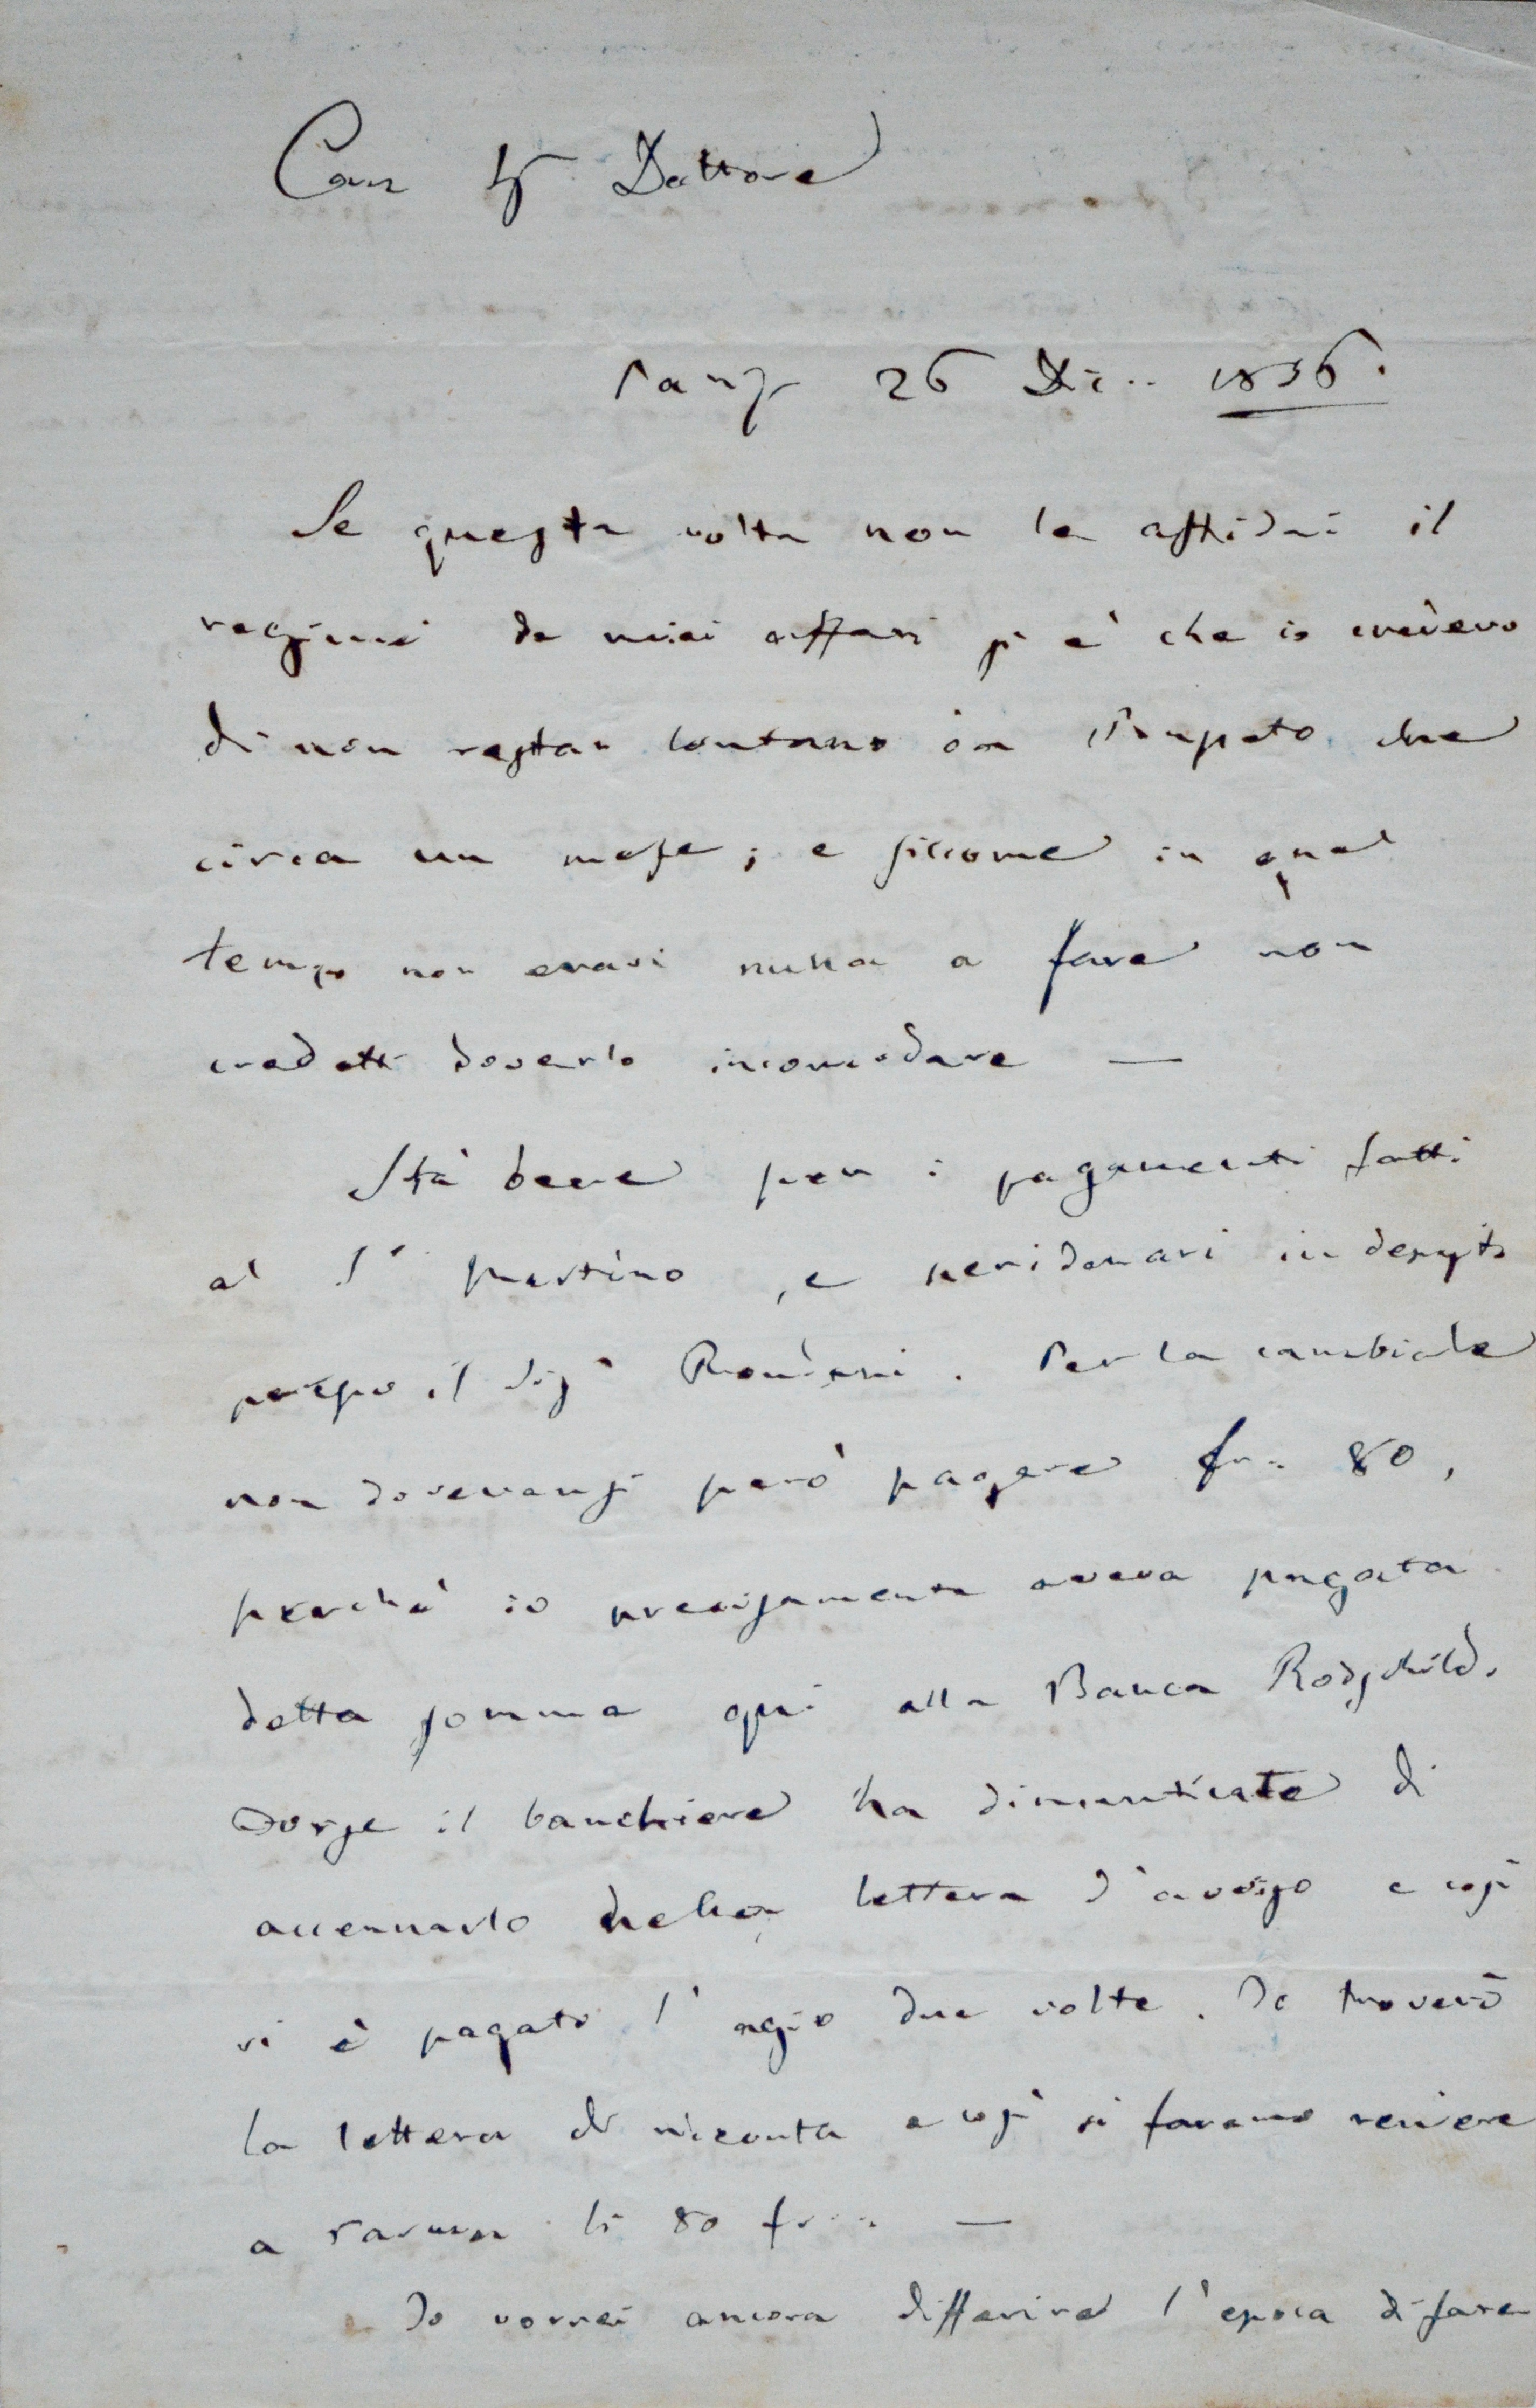 Caro Sig Dottore
Parigi 26 Dic.. 1856.
Se questa volta non le affidai il
regime de miei affari si è che io credevo
di non restar lontano da Busseto che
circa un mese; e siccome in quel
tempo non eravi nulla a fare non
credetti doverlo incomodare —
Stà bene per i pagamenti fatti
al S.r , e nei denari in deposito
presso il Sig.r . Per la cambiale
non dovevansi però pagare fr.. 80,
perchè io precisamente aveva pagata
detta somma qui alla Banca Rodschild.
Forse il banchiere ha dimenticato di
accennarlo nella lettera d'avviso e così
si è pagato l'agio due volte. Io troverò
la lettera di ricevuta e così si faremo rendere
a Parma li 80 fr... —
Io vorrei ancora differire l'epoca di fare